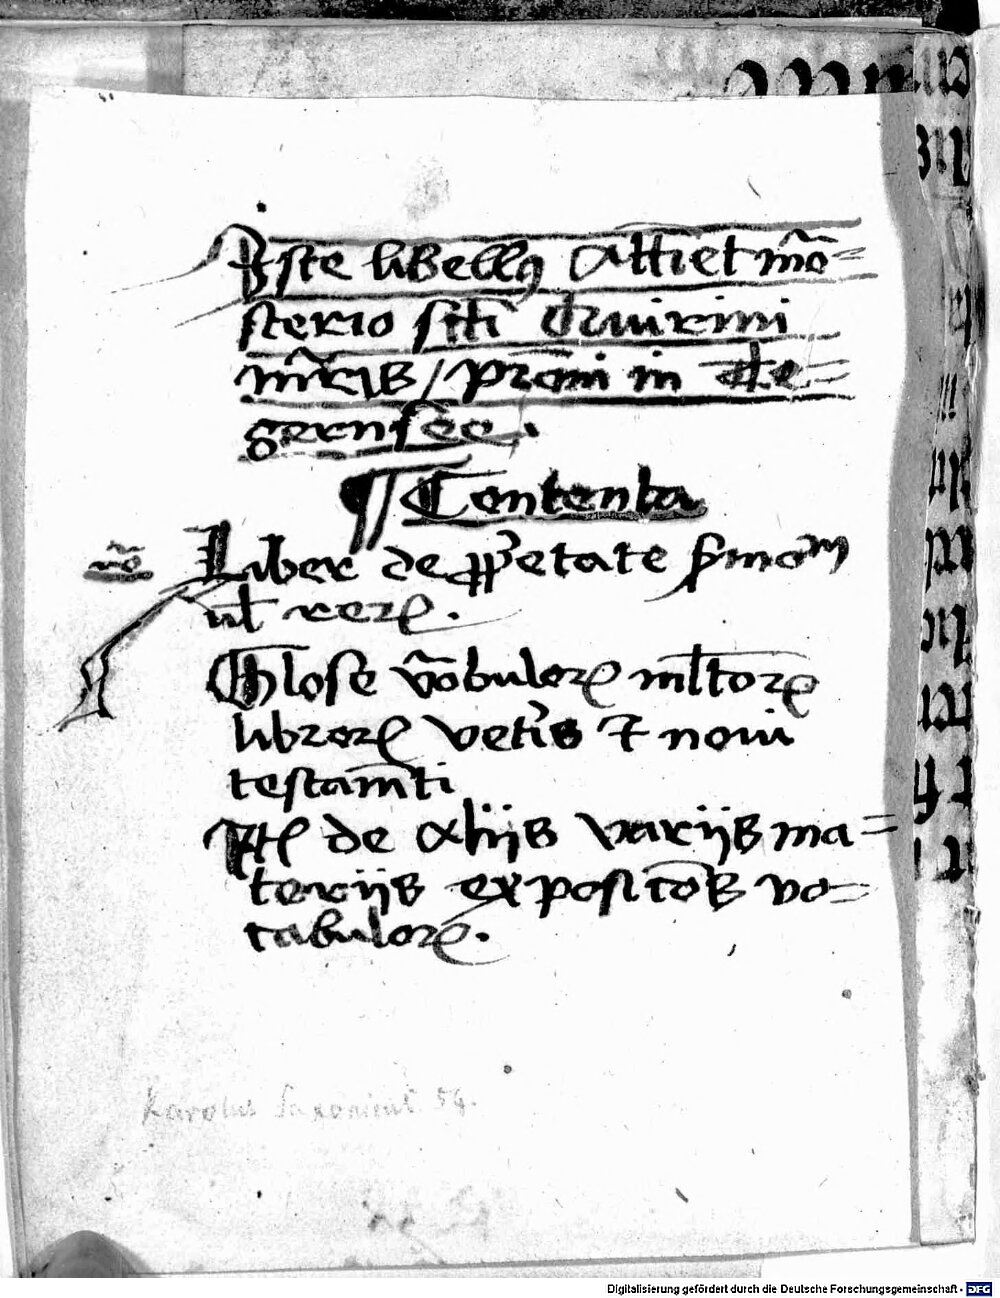 Iste libellꝯ Attīet mōͣ=
sterio sctī Quirini
mr̄ṙis / prom̄ in Te=
gernsēe.
¶ Contenta
Liber de ꝓp̄etate s̄monū
ul̄ rerꝝ.
Glose vōbulorꝝ ml̄torꝝ
librorꝝ vet̄is ⁊ novi
testam̄ti
It̄ de alijs varijs ma=
terijs expositōīs vo=
cabulorꝝ.
Karolus Saxonicus 54.
Digitalisierung gefördert durch die Deutsche Forschungsgemeinschaft - DFG